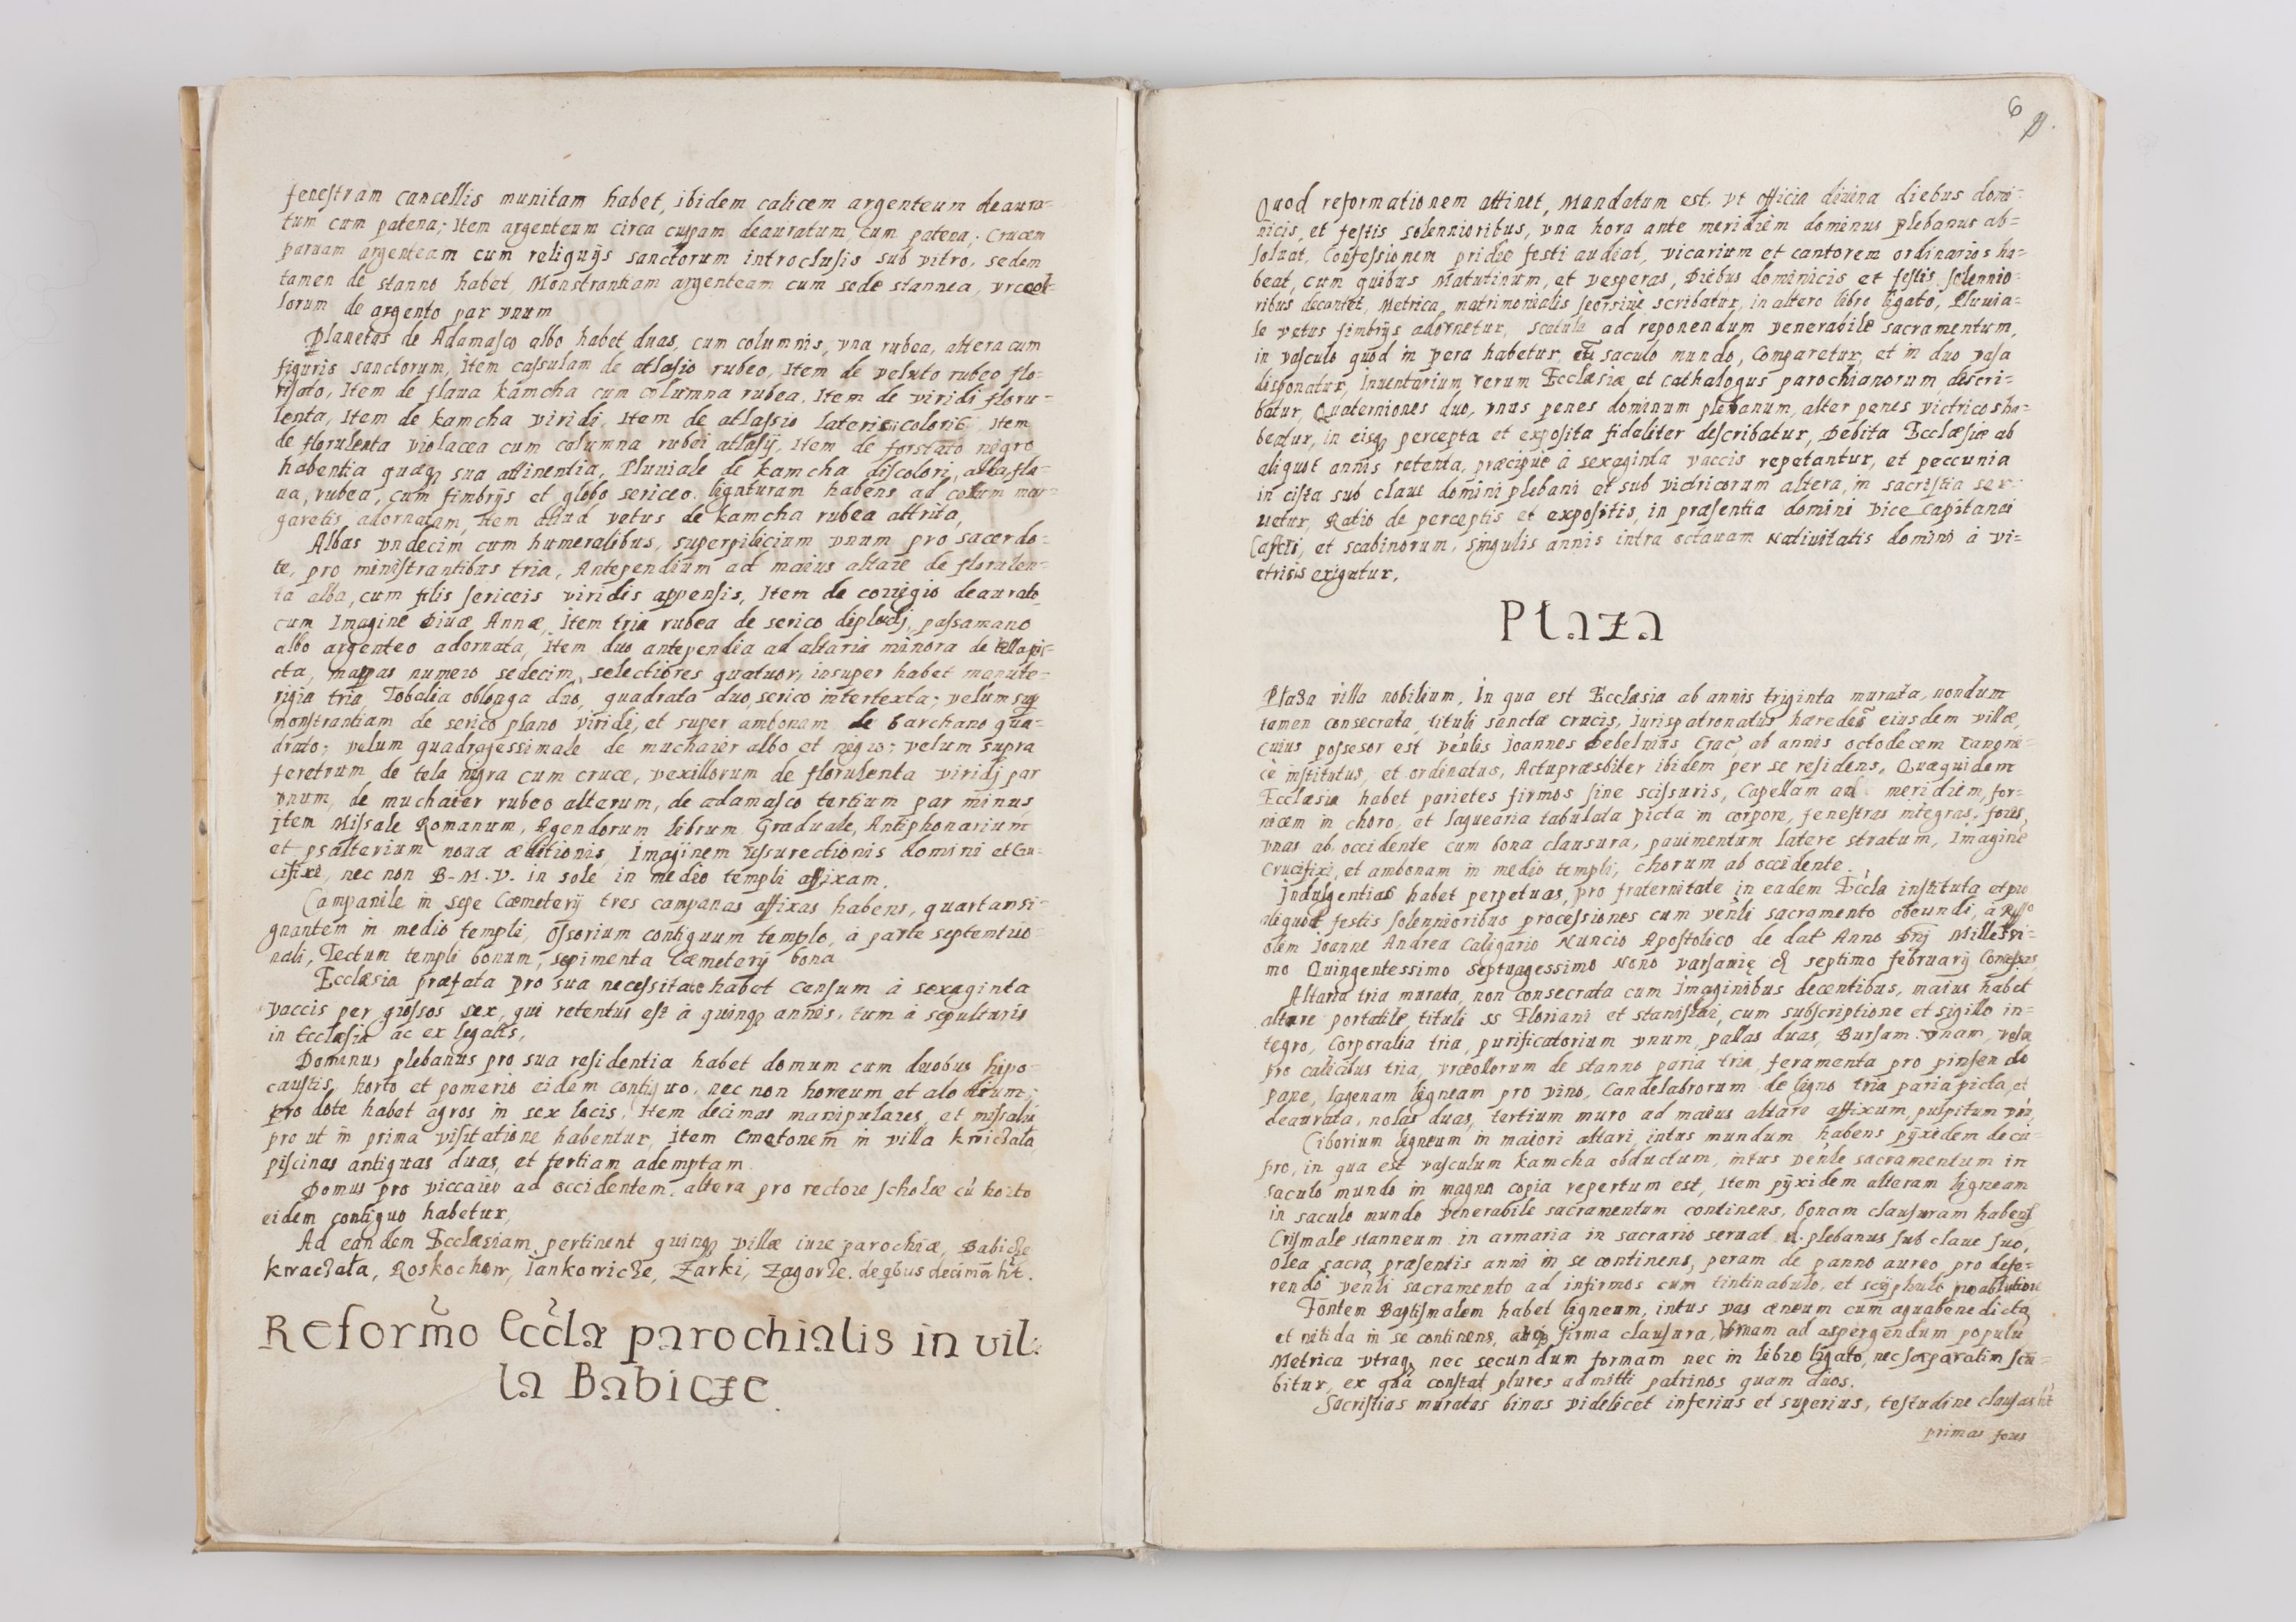 fenestram cancellis munitam habet, ibidem calicem argenteum deaura=
tum cum patena; Item argenteum circa cuppam deauratum cum patena; Crucem
paruam argenteam cum reliquijs sanctorum introclusis sub vitro, sedem
tamen de stanno habet, Monstrantiam argenteam cum sede stannea, vrceol=
lorum de argento par vnum
Planetas de Adamasco albo habet duas, cum columnis, vna rubea, altera cum
figuris sanctorum, Item casulam de atlasio rubeo, Item de veluto rubeo flo=
risato, Item de flaua kamcha cum columna rubea, Item de viridi floru=
lenta, Item de kamcha viridi, Item de atlassio latericicoloris Item
de florulenta violacea cum columna rubei atlasij, Item de forstato nigro
habentia quæq sua attinentia, Pluuiale de kamcha discolori, alba, fla=
ua, rubea, cum fimbrijs et globo sericeo. ligaturam habens ad collum mar=
garetis adornatam, Item aliud vetus de kamcha rubea attrita,
Albas vndecim cum humeralibus, superpilicium vnum pro sacerdo=
te, pro ministrantibus tria, Antependium ad maius altare de florulen=
ta alba, cum filis sericeis viridis appensis, Item de corrigio deaurato
cum Imagine Diuæ Annæ, Item tria rubea de serico diploidj, passamano
albo argenteo adornata, Item duo antependia ad altaria minora de tella pi=
cta, mappas numero sedecim, selectiores quatuor, insuper habet manute=
rigia tria, Tobalia oblonga duo, quadrata duo, serico intertexta; velum sup
monstrantiam de serico plano viridi, et super ambonam de barchano qua=
drato; velum quadragessimale de muchaier albo et nigro; velum supra
feretrum de tela nigra cum cruce, vexillorum de florulenta viridj par
vnum, de muchaier rubeo alterum, de adamasco tertium par minus
Item Missale Romanum, Agendorum librum, Graduale, Antiphonarium
et psalterium nouæ æditionis, Imaginem resurectionis domini et Cru=
cifixi, nec non B. M. V. in sole in medio templi affixam.
Campanile in sepe Cæmeterij tres campanas affixas habens, quartam si=
gnantem in medio templi, Ossorium contiguum templo, à parte septemtrio=
nali, Tectum templi bonum, sepimenta Cæmeterij bona
Ecclesia præfata pro sua necessitate habet Censum à sexaginta
vaccis per grossos sex, qui retentus est à quinq annis, tum à sepulturis
in Ecclesia ac ex legatis,
Dominus plebanus pro sua residentia habet domum cum duobus hipo=
caustis, horto et pomerio eidem contiguo, nec non horeum et alodium;
pro dote habet agros in sex locis, Item decimas manipulares, et missalia
pro ut in prima visitatione habentur, Item Cmetonem in villa kwiczala
piscinas antiquas duas, et tertiam ademptam
Domus pro viccario ad occidentem, altera pro rectore scholæ cũ horto
eidem contiguo habetur,
Ad eandem Ecclæsiam pertinent quinq villæ iure parochiæ, Babicze
kwaczała, Roskochow, Iankowicze, Zarki, Zagorze. de qbus decimã ht.
Reformo Eccla parochialis in vil=
la Babicze.
6
Quod reformationem attinet, Mandatum est, vt officia diuina diebus domi=
nicis, et festis solennioribus, vna hora ante meridiem dominus plebanus ab=
soluat, Confessionem pridie festi audiat, vicarium et cantorem ordinarios ha=
beat, cum quibus Matutinum, et vesperas, Diebus dominicis et festis solennio=
ribus decantet, Metrica matrimonialis seorsiue scribatur, in altero libro ligato, Pluuia=
le vetus fimbrijs adornetur, scatula ad reponendum venerabile sacramentum,
in vasculo quod in pera habetur, cũ saculo mundo, Comparetur, et in duo vasa
disponatur, Inuentarium rerum Ecclæsiæ et Cathalogus parochianorum descri=
batur, Quaterniones duo, vnus penes dominum plebanum, alter penes victricos ha=
beatur, in eisq percepta et exposita fidaliter describatur, Debita Ecclæsiæ ab
aliquot annis retenta, præcipuè à sexaginta vaccis repetantur, et peccunia
in cista sub claue domini plebani et sub victricorum altera, in sacristia ser=
uetur, Ratio de perceptis et expositis, in præsentia domini Vice Capitanei
Castri, et scabinorum, singulis annis intra octauam Natiuitatis domini à vi=
ctricis exigatur,
Płaza
Płaza villa nobilium, in qua est Ecclæsia ab annis triginta murata, nondum
tamen consecrata, tituli sanctæ crucis, Iurispatronatus hæredes eiusdem villæ,
cuius possesor est venlis Ioannes Debelnius Crac, ab annis octodecem Canoni=
cè institutus, et ordinatus, Actupræsbiter ibidem per se residens, Quæquidem
Ecclæsia habet parietes firmos sine scissuris, Capellam ad meridiem, for=
nicem in choro, et laquearia tabulata picta in corpore, fenestras integras, fores
vnas ab occidente cum bona clausura, pauimentum latere stratum, Imagine
Crucifixi, et ambonam in medio templi, chorum ab occidente.
Indulgentias habet perpetuas, pro fraternitate in eadem Eccla instituta et pro
aliquot festis solennioribus processiones cum venli sacramento obeundi, a Rsso
olim Ioanne Andrea Caligario Nuncio Apostolico de dat Anno Dnj Millessi=
mo Quingentessimo septuagessimo Nono Varsauię septimo februarij Concessas
Altaria tria murata, non consecrata cum Imaginibus decentibus, maius habet
altare portatile tituli ss Floriani et stanislai, cum subscriptione et sigillo in=
tegro, Corporalia tria, purificatorium vnum, pallas duas, Bursam vnam, vela
pro calicibus tria, vrceollorum de stanno paria tria, feramenta pro pinsendo
pane, lagenam ligneam pro vino, Candelabrorum de ligno tria paria picta, et
deaurata, nolas duas, tertium muro ad maius altare affixum, pulpitum vnũ,
Ciborium ligneum in maiori altari, intus mundum habens pÿxidem de cu=
pro, in qua est vasculum kamcha obductum, intus venle sacramentum in
saculo mundo in magna copia repertum est, Item pÿxidem alteram ligneam
in saculo mundo venerabile sacramentum continens, bonam clausuram habens
Crismale stanneum in armaria in sacrario seruat d. plebanus sub claue suo,
olea sacra præsentis anni in se continens, peram de panno aureo pro defe=
rendo venli sacramento ad infirmos cum tintinabulo, et scÿphulo pro ablutione
Fontem Baptismalem habet ligneum, intus vas æneum cum aqua benedicta
et nitida in se continens, firma clausura, Vrnam ad aspergendum populũ
Metrica vtraq, nec secundum formam nec in libro ligato, nec sæparatim scri=
bitur, ex qua constat plures admitti patrinos quam duos.
Sacristias muratas binas videlicet inferius et superius, testudine clausas ht
primas fores